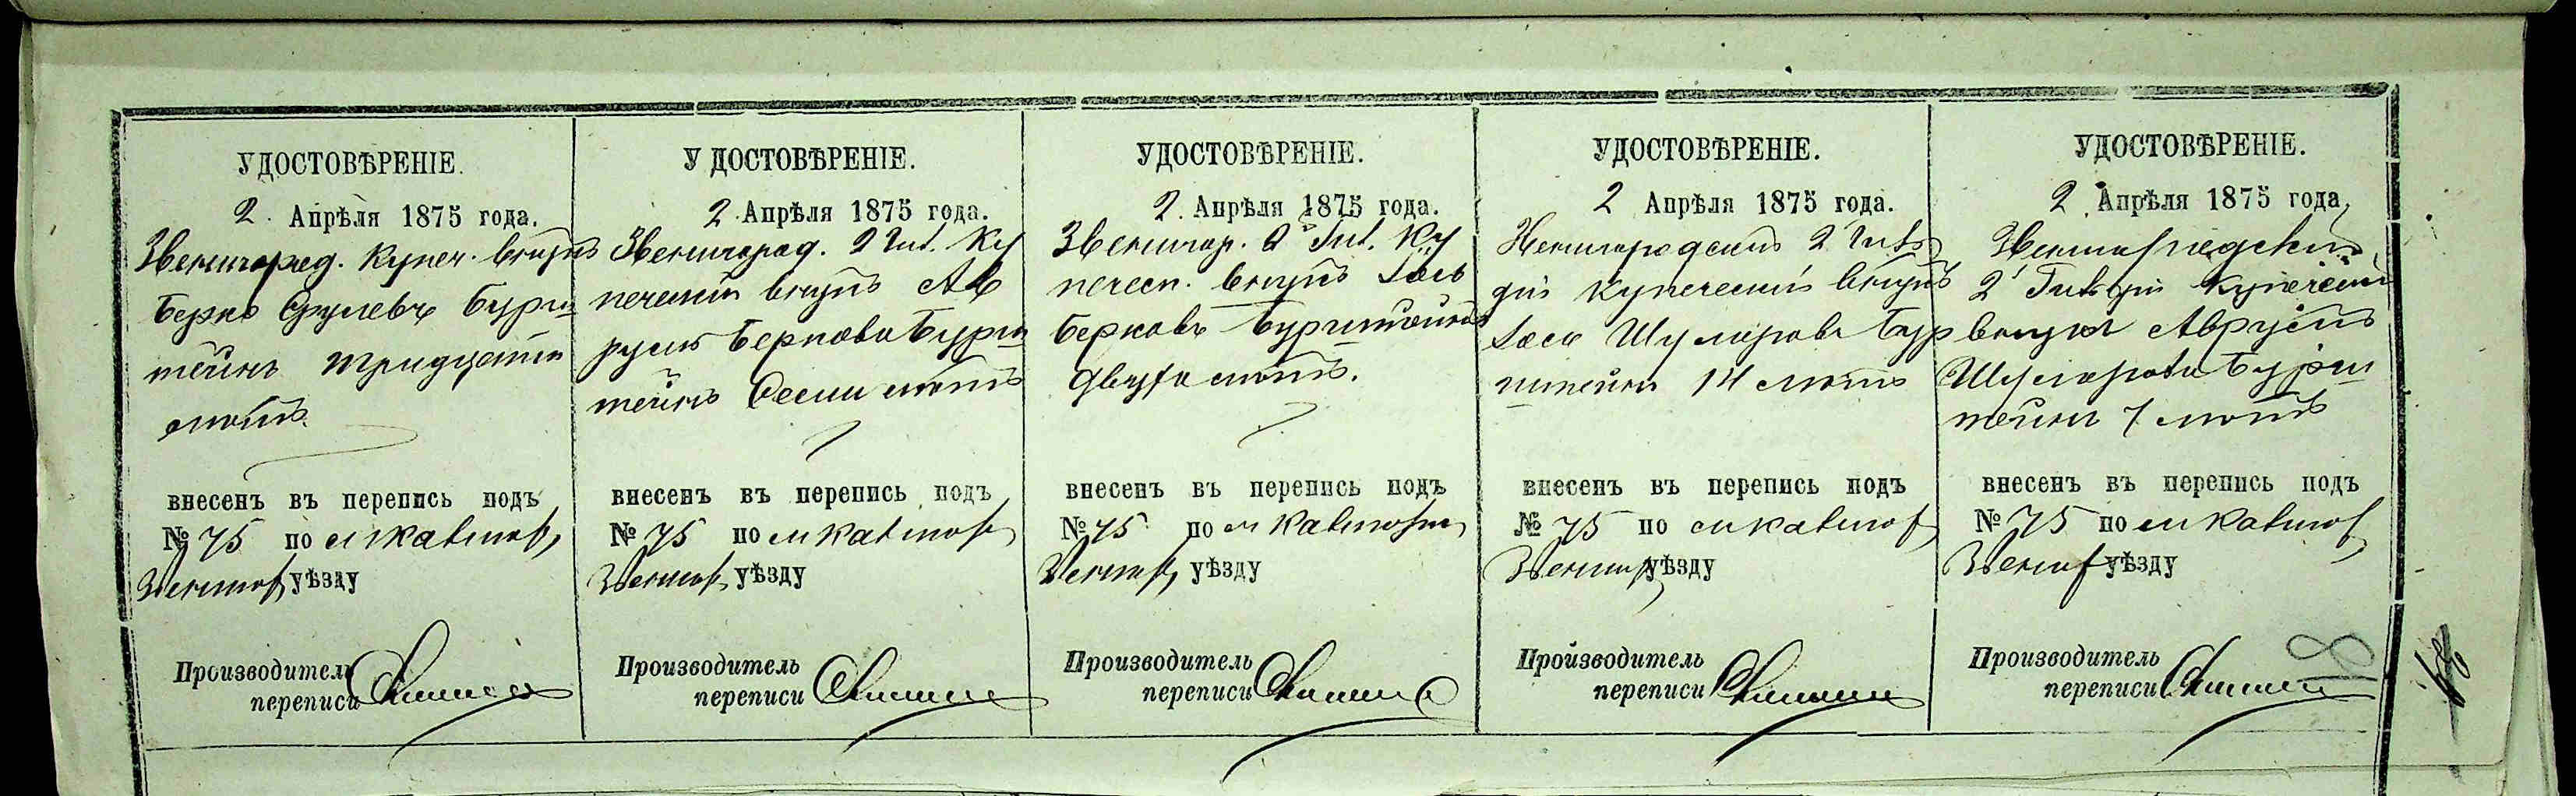 УДОСТОВѢРЕНІЕ.
2. Апрѣля 1875 года.
Звенигород. Купеч. внукъ
Берко Срулевъ Бурш
тейнъ тридцати
лѣтъ.
внесенъ въ перепись подъ
№ 75 по м
Звенигор уѣзду
Производитель
переписи
У ДОСТОВѢРЕНІЕ.
2. Апрѣля 1875 года.
Звенигород. 2 Гил. Ку
печескій внукъ Ав
румъ Берковъ Бурш
тейнъ семи лѣтъ
внесенъ въ перепись подъ
№ 75 по м
Звенигор уѣзду
Производитель
переписи
УДОСТОВѢРЕНІЕ.
2. Апрѣля 1875 года.
Звенигор. 2й Гил. Ку
ческ. внукъ
Берковъ Бурштейнъ
двухъ лѣтъ.
внесенъ въ перепись подъ
№ 75 по м
Звенигор уѣзду
Производитель
переписи
УДОСТОВѢРЕНІЕ.
2 Апрѣля 1875 года.
Звенигородскій 2 Гиль
діи купеческій внукъ
Шулимовъ Бур
штейнъ 14 лѣтъ
внесенъ въ перепись подъ
№ 75 по м
Звенигор уѣзду
Производитель
переписи
УДОСТОВѢРЕНІЕ.
2 Апрѣля 1875 года.
Звенигородскій
2й Гильдіи купеческій
внукъ Аврумъ
Шулимовъ Бурш
тейнъ 7 лѣтъ
внесенъ въ перепись подъ
№ 75 по м
Звенигор уѣзду
Производитель
переписи
18